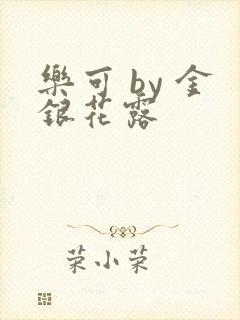 樂可 by 金
銀花露
菜小菜